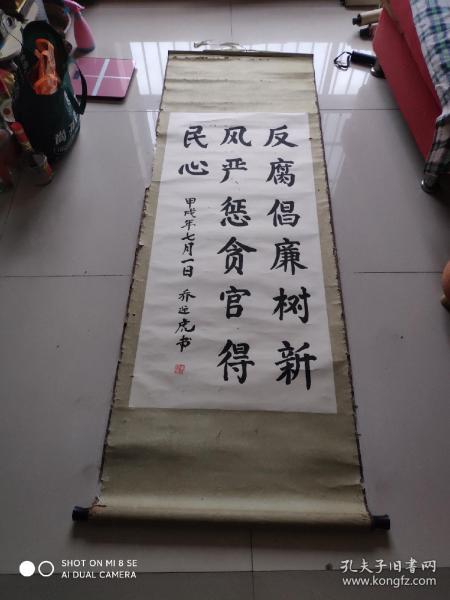 反腐倡廉树新
风严惩贪官得
民心
甲戌年七月一日 乔进虎书
SHOT ON MI 8 SE
AI DUAL CAMERA
孔夫子旧书网
www.kongfz.com